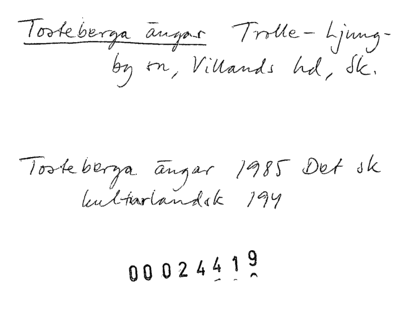 Tosteberga ängar Trolle-Ljung-
by sn, Villands hd, Sk.
Tosteberga ängar 1985 Det sk
kulturlandsk 194
00024419